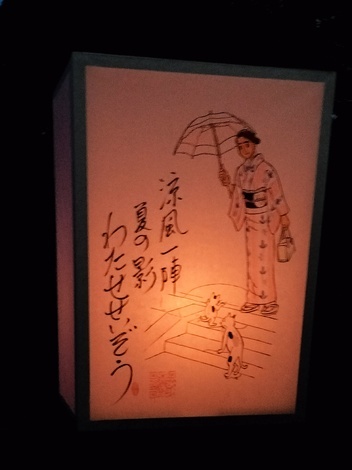 涼風一陣
夏の影
わたせせいぞう